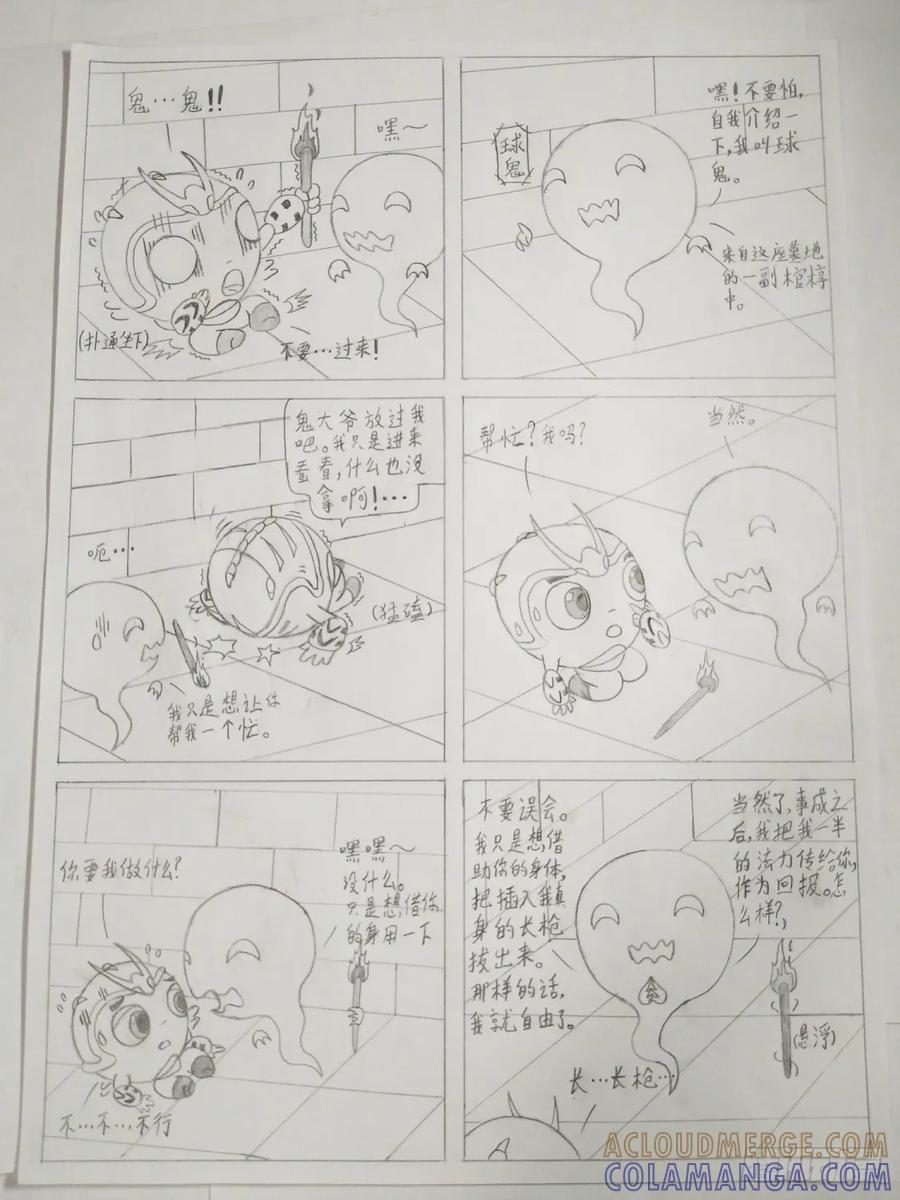 鬼…鬼!!
嘿～
(扑通坐下)
不要…过来!
球
鬼
嘿!不要怕,
自我介绍一
下,我叫球
鬼。
来自这座墓地
的一副棺椁
中。
鬼大爷放过我
吧。我只是进来
看看,什么也没
拿啊!…
呃…
(猛磕)
我只是想让你
帮我一个忙。
帮忙?我吗?
当然。
你要我做什么?
嘿嘿～
没什么。
只是想借你
的身用一下
不…不…,不行
不要误会。
我只是想借
助你的身体,
把插入我真
身的长枪
拔出来。
那样的话,
我就自由了。
当然了,事成之
后,我把我一半
的法力传给你,
作为回报。怎
么样?
(悬浮)
长…长枪…
ACLOUDMERGE.COM
COLAMANGA.COM